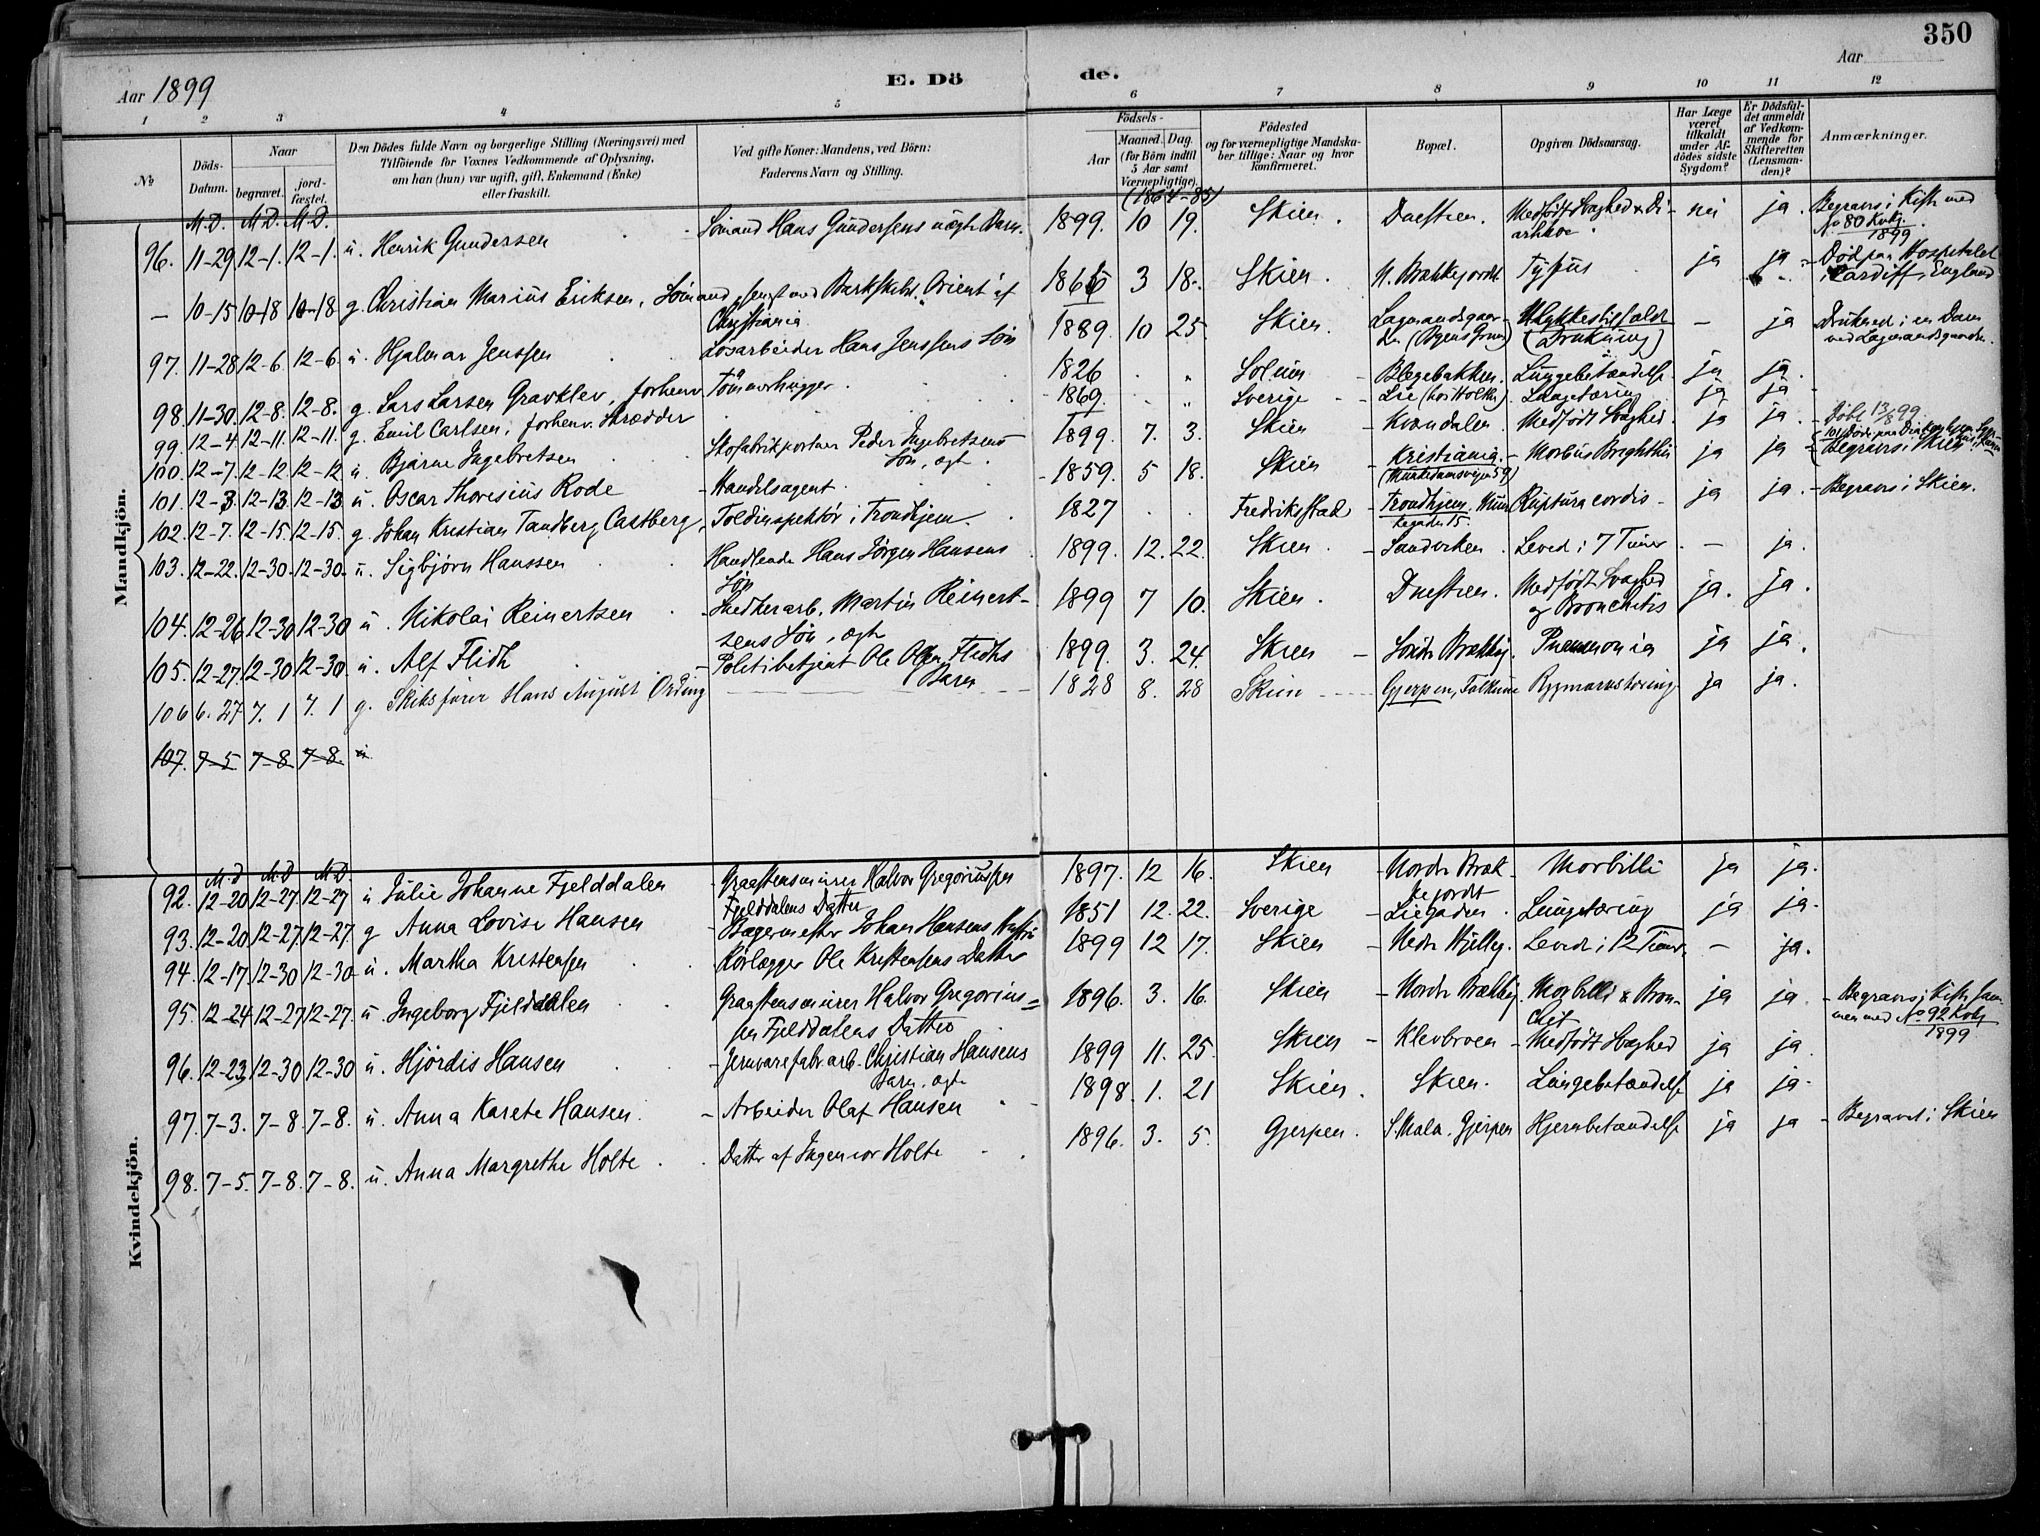 350
Aar 1899
E. Dö
de.
Aar
1 2 3 4 5 6 7 8 9 10 11 12
№
Döds-
Datum.
Naar
begravet.
jord-
fæstet.
Den Dödes fulde Navn og borgerlige Stilling (Næringsvei) med
Tilföiende for Voxnes Vedkommende af Oplysning,
om han (hun) var ugift, gift, Enkemand (Enke)
eller fraskilt.
Ved gifte Koner: Mandens, ved Börn:
Faderens Navn og Stilling.
Födsels-
Aar
Maaned. Dag.
(for Börn indtil
5 Aar samt
Værnepligtige).
Födested
og for værnepligtige Mandska-
ber tillige: Naar og hvor
konfirmeret.
Bopæl.
Opgiven Dödsaarsag.
Har Læge
været
tilkaldt
under Af-
dödes sidste
Sygdom?
Er Dödsfal-
det anmeldt
af Vedkom-
mende for
Skifteretten
(Lensman-
den)?
Anmærkninger.
Mandkjön.
M. D. M. D. M. D.
(1864-85)
96. 11-29 12-1. 12-1. u. Henrik Gundersen Sömand Hans Gundersens uægte Barn. 1899. 10 19. Skien. Duestien. Medfödt Svaghed & Di-
arhoe nei ja. Begravs i Kiste med
No 80 Kvkj.
1899
— 10-15 10-18 10-18 g. Christian Marius Eriksen, Sömand, senest med Barkskibet "Orient" af
Christiania 1866 3 18. Skien. N. Brækkejordet Tyfus ja ja - Död paa Hospitalet
i Cardiff, England
97. 11-28 12-6. 12-6. u. Hjalmar Jenssen Losarbeider Hans Jenssens Sön 1889. 10 25 Skien. Lagmandsgaar-
den (Bögens Grund) Ulykkestilfælde
(Drukning) — ja Druknet i en Dam
ved Lagmandsgaarden.
98. 11-30. 12-8. 12-8. g. Lars Larsen Gravklev, forhenv. Tömmerhugger. 1826 Solum Blegebakken. Lungebetændelse ja ja.
99. 12-4. 12-11. 12-11. g. Emil Carlsen, forhenv. Skrædder 1869. Sverige Lie (hos Holthe). Lungetæring ja ja
100. 12-7. 12-12 12-12 u. Bjarne Ingebretsen Skofabrikportner Peder Ingebretsens
Sön, ægte. 1899. 7. 3. Skien Kvendalen. Medfödt Svaghed. ja ja. Döbt 13/8 99
101. 12-3. 12-13. 12-13 u. Oscar Thoresius Rode - Handelsagent. 1859. 5 18. Skien - Kristiania. - Morbus Brightii ja ja
(Munkedamsveien 59)
Begravs i Skien
102. 12-7. 12-15. 12-15. g. Johan Kristian Tandberg Castberg, Toldinspektör i Trondhjem. 1827 Fredriksstad - Trondhjem, Munke-
gaden 15. Ruptura cordis - ja ja. - Begravs i Skien.
103. 12-22. 12-30. 12-30. u. Sigbjörn Hanssen Handlende Hans Jörgen Hansens
Sön 1899. 12. 22. Skien. - Sandviken. Leved i 7 Timer. — ja.
104. 12-26 12-30 12-30 u. Nikolai Reinertsen - Snedkerarb. Martin Reinert-
sens Sön, ægte 1899 7 10. Skien. Duestien. Medfödt Svaghed
og Bronchitis ja. ja.
105. 12-27. 12-30 12-30 u. Alf Flidh - Politibetjent Ole Olsen Flidhs
Barn 1899. 3. 24. Skien - Söndr Brækkej. Pneumonia ja ja.
106 6. 27. 7. 1 7. 1 g. Skibsförer Hans August Ording 1828 8. 28 Skien Gjerpen, Falkum Rygmarvstæring ja ja.
107. 7-5 7-8 7-8. u
Kvindekjön.
M. D M. D M. D.
92. 12-20 12-27. 12-27 u Julie Johanne Fjelddalen - Graastensmurer Halvor Gregoriussen
Fjelddalens Datter 1897. 12 16. Skien - Nordr Bræk-
kejordet Morbilli ja ja.
93. 12-20. 12-27. 12-27. g Anna Lovise Hansen - Bagermester Johan Hansens Hustru 1851 12. 22. Sverige - Liegaden. Lungetæring ja ja.
94. 12-17. 12-30 12-30 u. Martha Kristensen Rörlægger Ole Kristensens Datter 1899 12 17. Skien - Nedr Hjelley. Leved i 12 Timer. - ja.
95. 12-24 12-27 12-27. u. Ingeborg Fjelddalen Graastensmurer Halvor Gregorius-
sen Fjelddalens Datter 1896. 3. 16. Skien - Nordr Brækkej. Morbilli & Bron-
chit ja ja. - Begravs i Kiste sam-
men med No 92 Kvkj
1899
96. 12-23. 12-30 12-30 u. Hjördis Hansen - Jernvarefabr.arb. Christian Hansens
Barn, ægte 1899 11. 25. Skien - Klevbroen - Medfödt Svaghed ja ja.
97. 7-3. 7-8 7-8. u. Anna Karete Hansen. - Arbeider Olaf Hansen 1898. 1. 21 Skien. Skien. Lungebetændelse ja ja.
98. 7-5. 7-8. 7-8. u. Anna Margrethe Holte. Datter af Ingeniör Holte 1896. 3. 5. Gjerpen. S. Mæla. Gjerpen Hjernebetændelse ja ja - Begravet i Skien